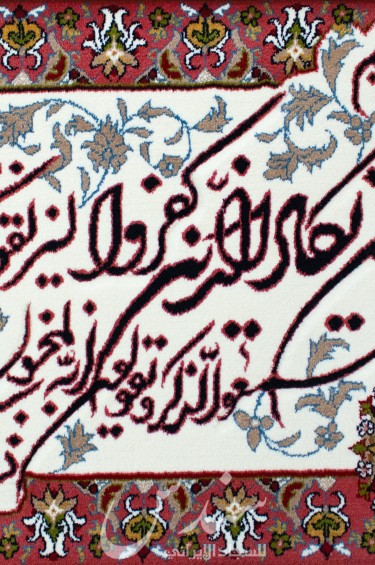 يكاد الذين كفروا ليزلقو
سمعوا الذكر ويقولون انه لمجنون
سندس
للسجاد الإيراني